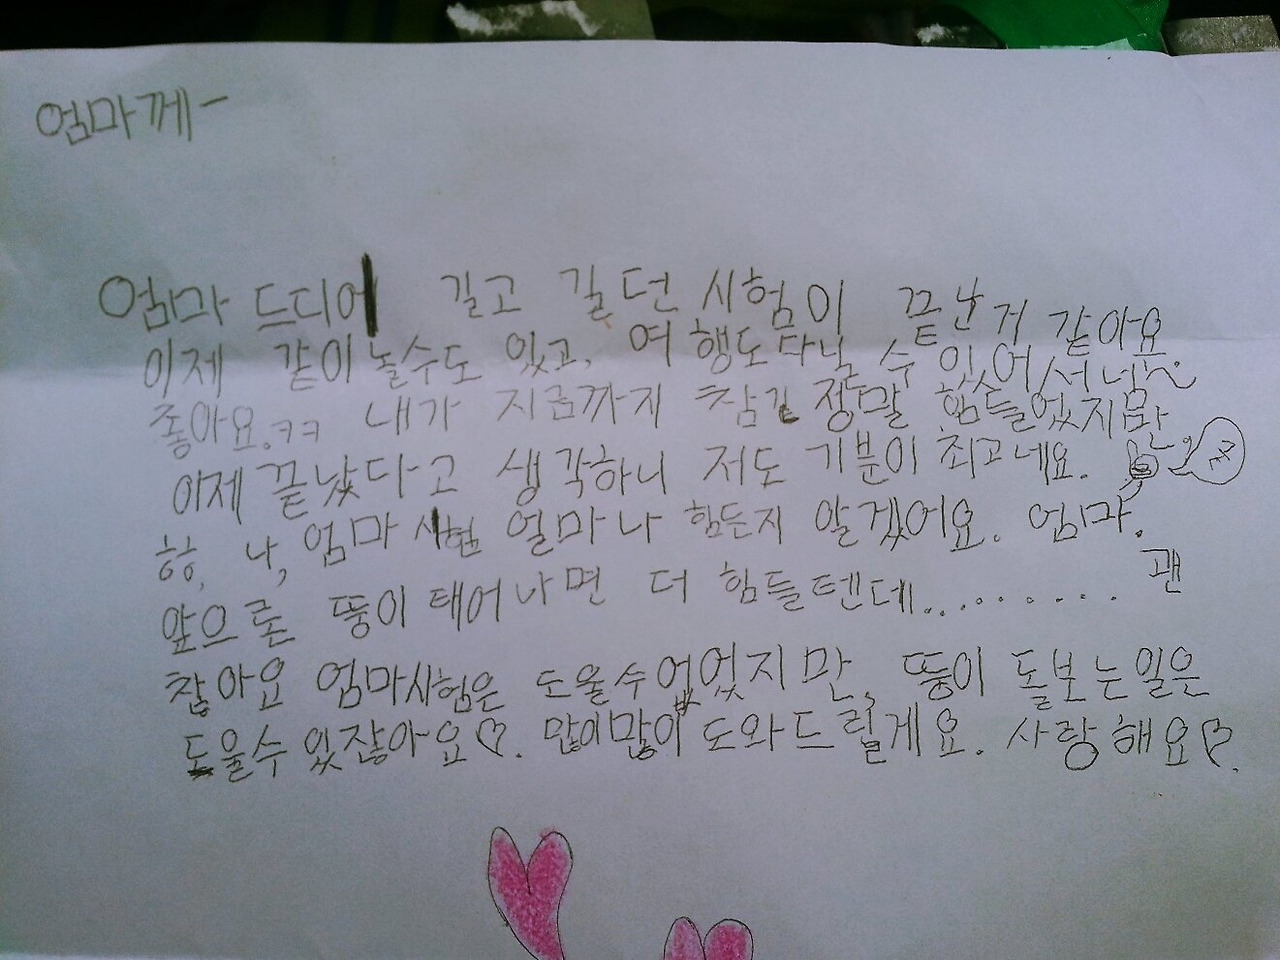 엄마께-
엄마 드디어 길고 길던 시험이 끝난거 같아요
이제 같이 놀수도 있고, 여행도 다닐 수 있어서 넘~
좋아요.ㅋㅋ 내가 지금까지 참 정말 힘들었지만
이제 끝났다고 생각하니 저도 기분이 최고네요.
하, 나, 엄마 시험 얼마나 힘든지 알겠어요. 엄마.
앞으론 뚱이 태어나면 더 힘들텐데......... 괜
찮아요 엄마시험은 도울수 없었지만, 뚱이 돌보는일은
도울수 있잖아요♡. 많이많이 도와드릴게요. 사랑해요♡.